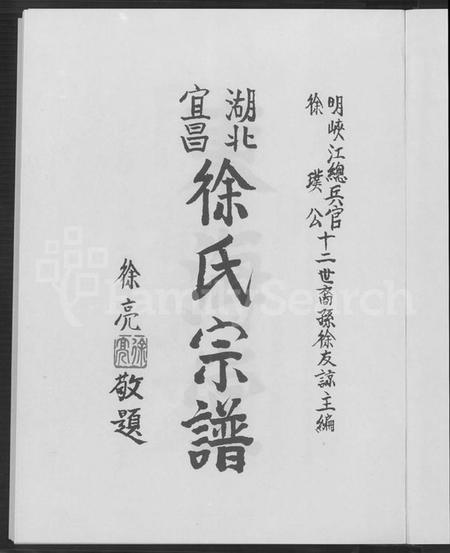 明峽江總兵官
徐璞公十二世裔孫徐友諒主編
湖北
宜昌
徐氏宗譜
徐亮
徐亮
敬題
FamilySearch